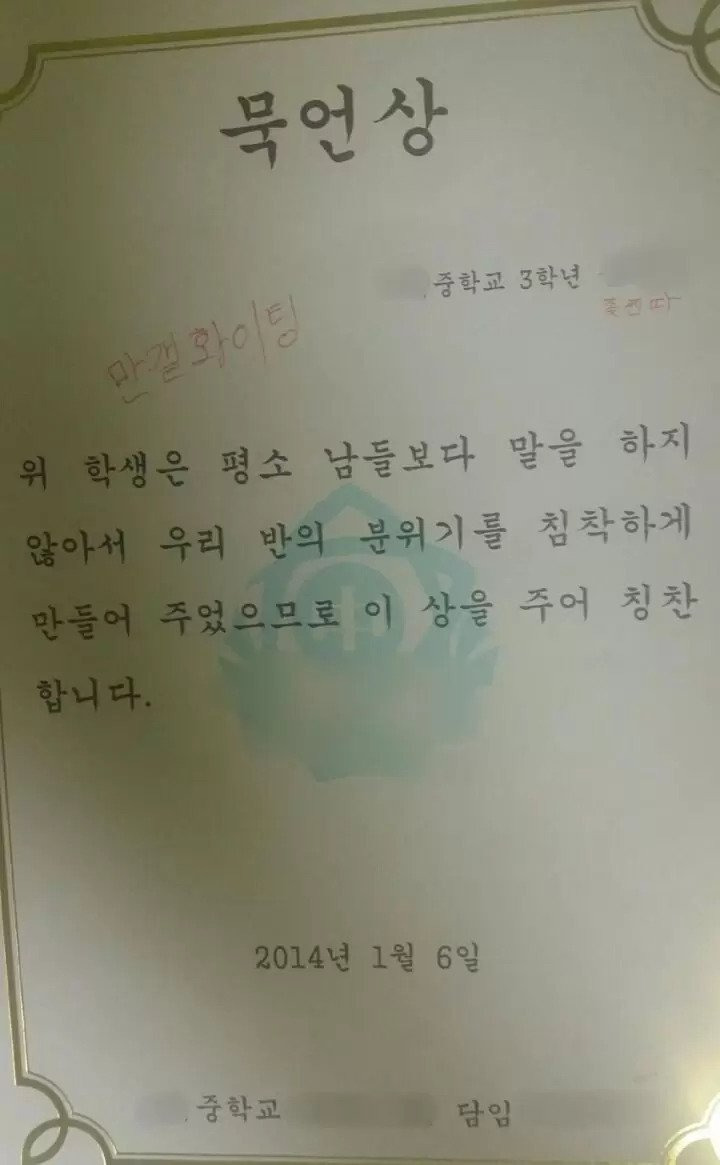 묵언상
중학교 3학년
만갤화이팅
위 학생은 평소 남들보다 말을 하지
않아서 우리 반의 분위기를 침착하게
만들어 주었으므로 이 상을 주어 칭찬
합니다.
2014년 1월 6일
중학교 담임